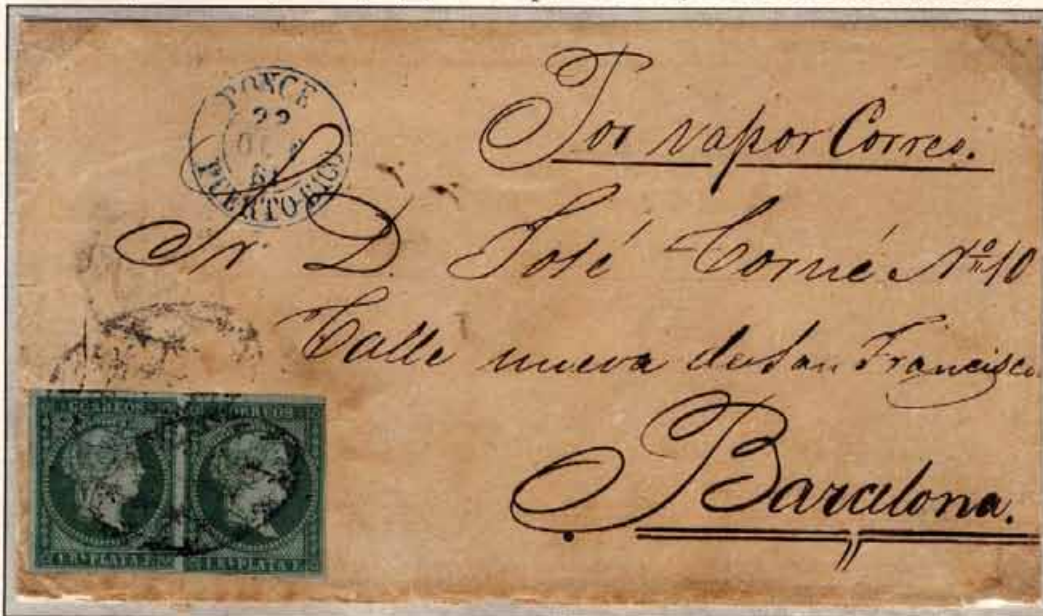 PONCE
22
PUERTO-RICO
Por vapor Correo.
Sr. D. José Torné Nº 10
Calle nueva de San Francisco
Barcelona.
CORREOS CORREOS
1 Rl PLATA F. 1 Rl PLATA F.